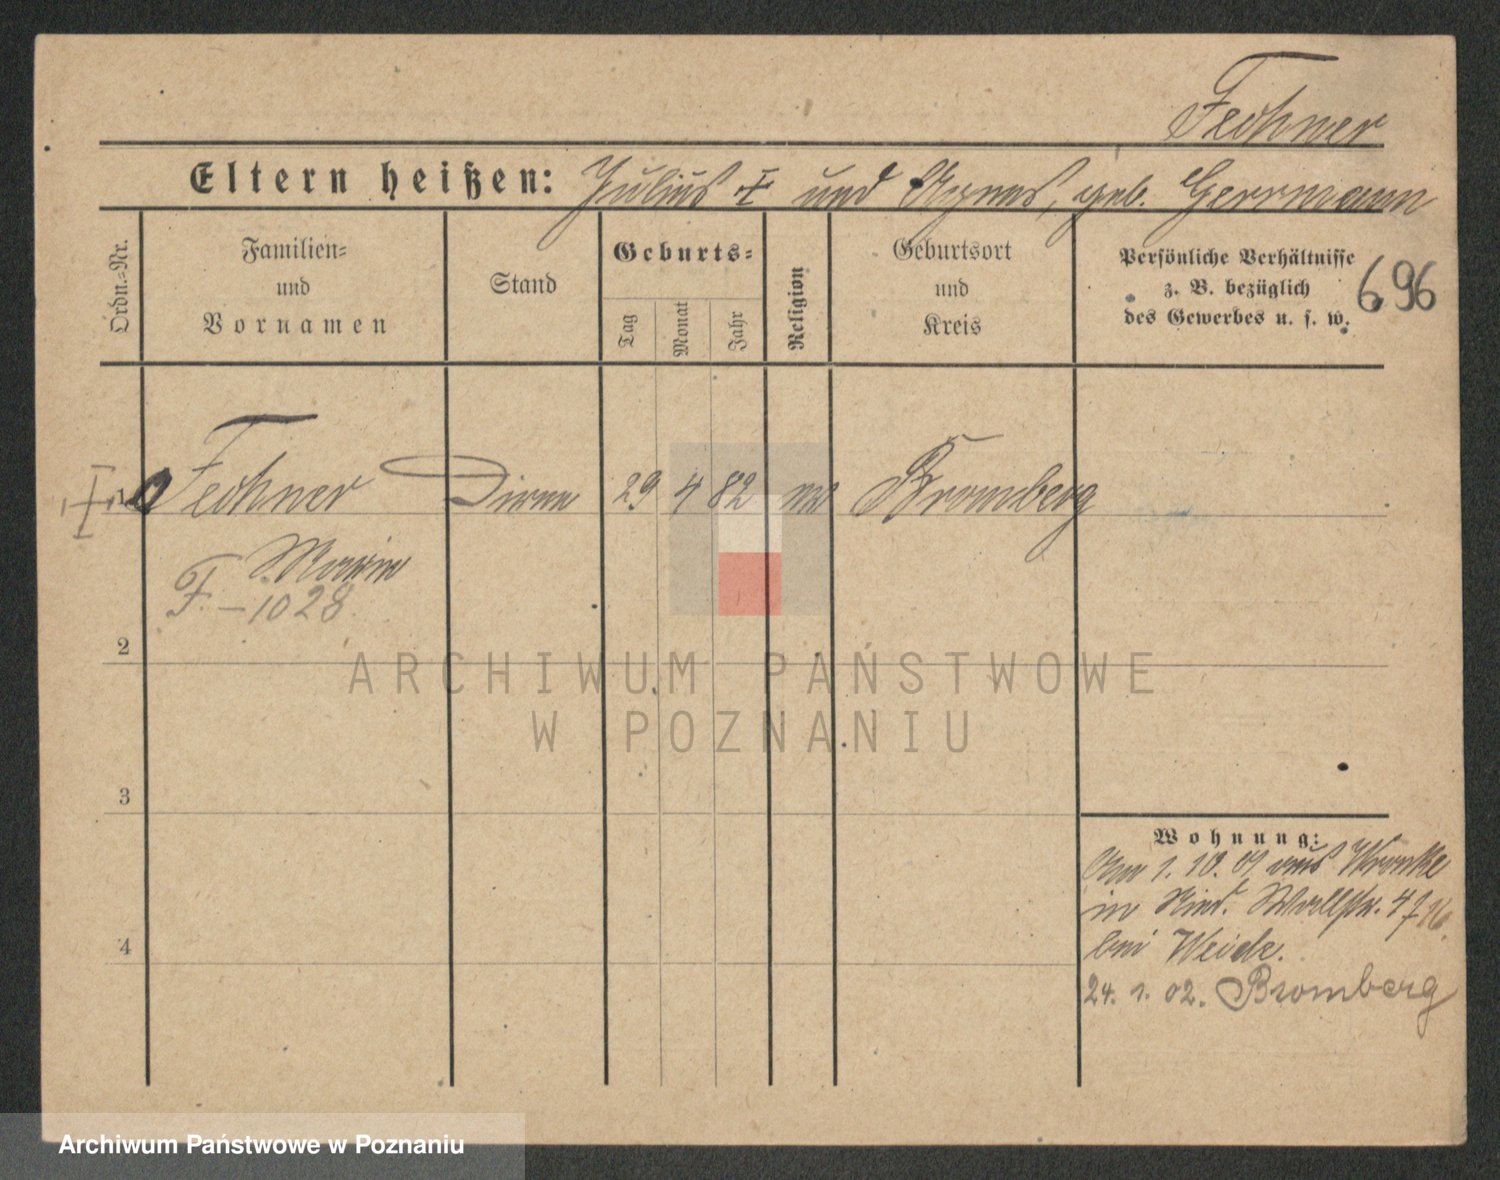 Fechner
Eltern heißen: Julius † und Agnes, geb. Germann
Ordn.=Nr.
Familien=
und
Vornamen
Stand
Geburts=
Tag
Monat
Jahr
Religion
Geburtsort
und
Kreis
Persönliche Verhältnisse
z. B. bezüglich
des Gewerbes u. s. w.
696
I
1
Fechner Dirne 29 4 82 Bromberg
Marie
F. – 1028
2
3
4
Wohnung:
Am 1. 10. 01 aus Wronke
in Wallstr. 47
bei Weide.
24. 1. 02. Bromberg
ARCHIWUM PAŃSTWOWE
W POZNANIU
Archiwum Państwowe w Poznaniu